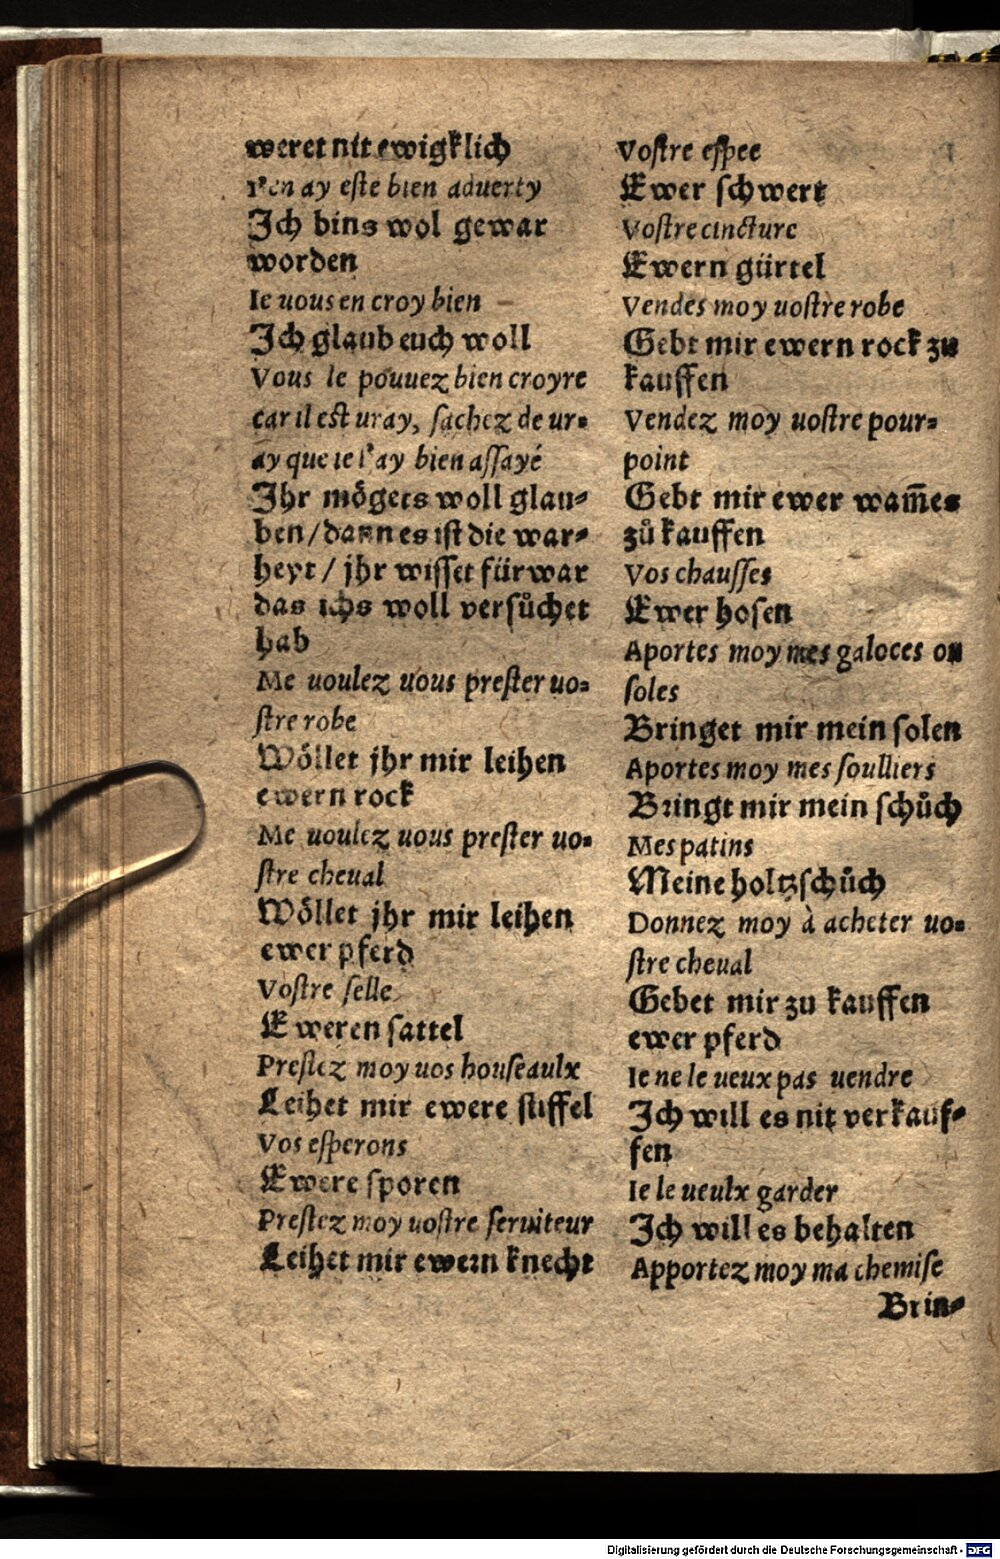 weret nit ewigklich
I'en ay este bien aduerty
Jch bins wol gewar
worden
Ie uous en croy bien
Jch glaub euch woll
Vous le pouuez bien croyre
car il est uray, sachez de ur-
ay que ie l'ay bien assayé
Jhr mögets woll glau-
ben/dann es ist die war-
heyt / jhr wisset fürwar
das ichs woll versůchet
hab
Me uoulez uous prester uo-
stre robe
Wöllet jhr mir leihen
ewern rock
Me uoulez uous prester uo-
stre cheual
Wöllet jhr mir leihen
ewer pferd
Vostre selle
Eweren sattel
Prestez moy uos houseaulx
Leihet mir ewere stiffel
Vos esperons
Ewere sporen
Prestez moy uostre seruiteur
Leihet mir ewern knecht
Vostre espee
Ewer schwert
Vostre cincture
Ewern gürtel
Vendes moy uostre robe
Gebt mir ewern rock zu
kauffen
Vendez moy uostre pour-
point
Gebt mir ewer wam̄es
zů kauffen
Vos chausses
Ewer hosen
Aportes moy mes galoces ou
soles
Bringet mir mein solen
Aportes moy mes soulliers
Bringt mir mein schůch
Mes patins
Meine holtzschůch
Donnez moy à acheter uo-
stre cheual
Gebet mir zu kauffen
ewer pferd
Ie ne le ueux pas uendre
Jch will es nit verkauf-
fen
Ie le ueulx garder
Jch will es behalten
Apportez moy ma chemise
Brin-
Digitalisierung gefördert durch die Deutsche Forschungsgemeinschaft - DFG